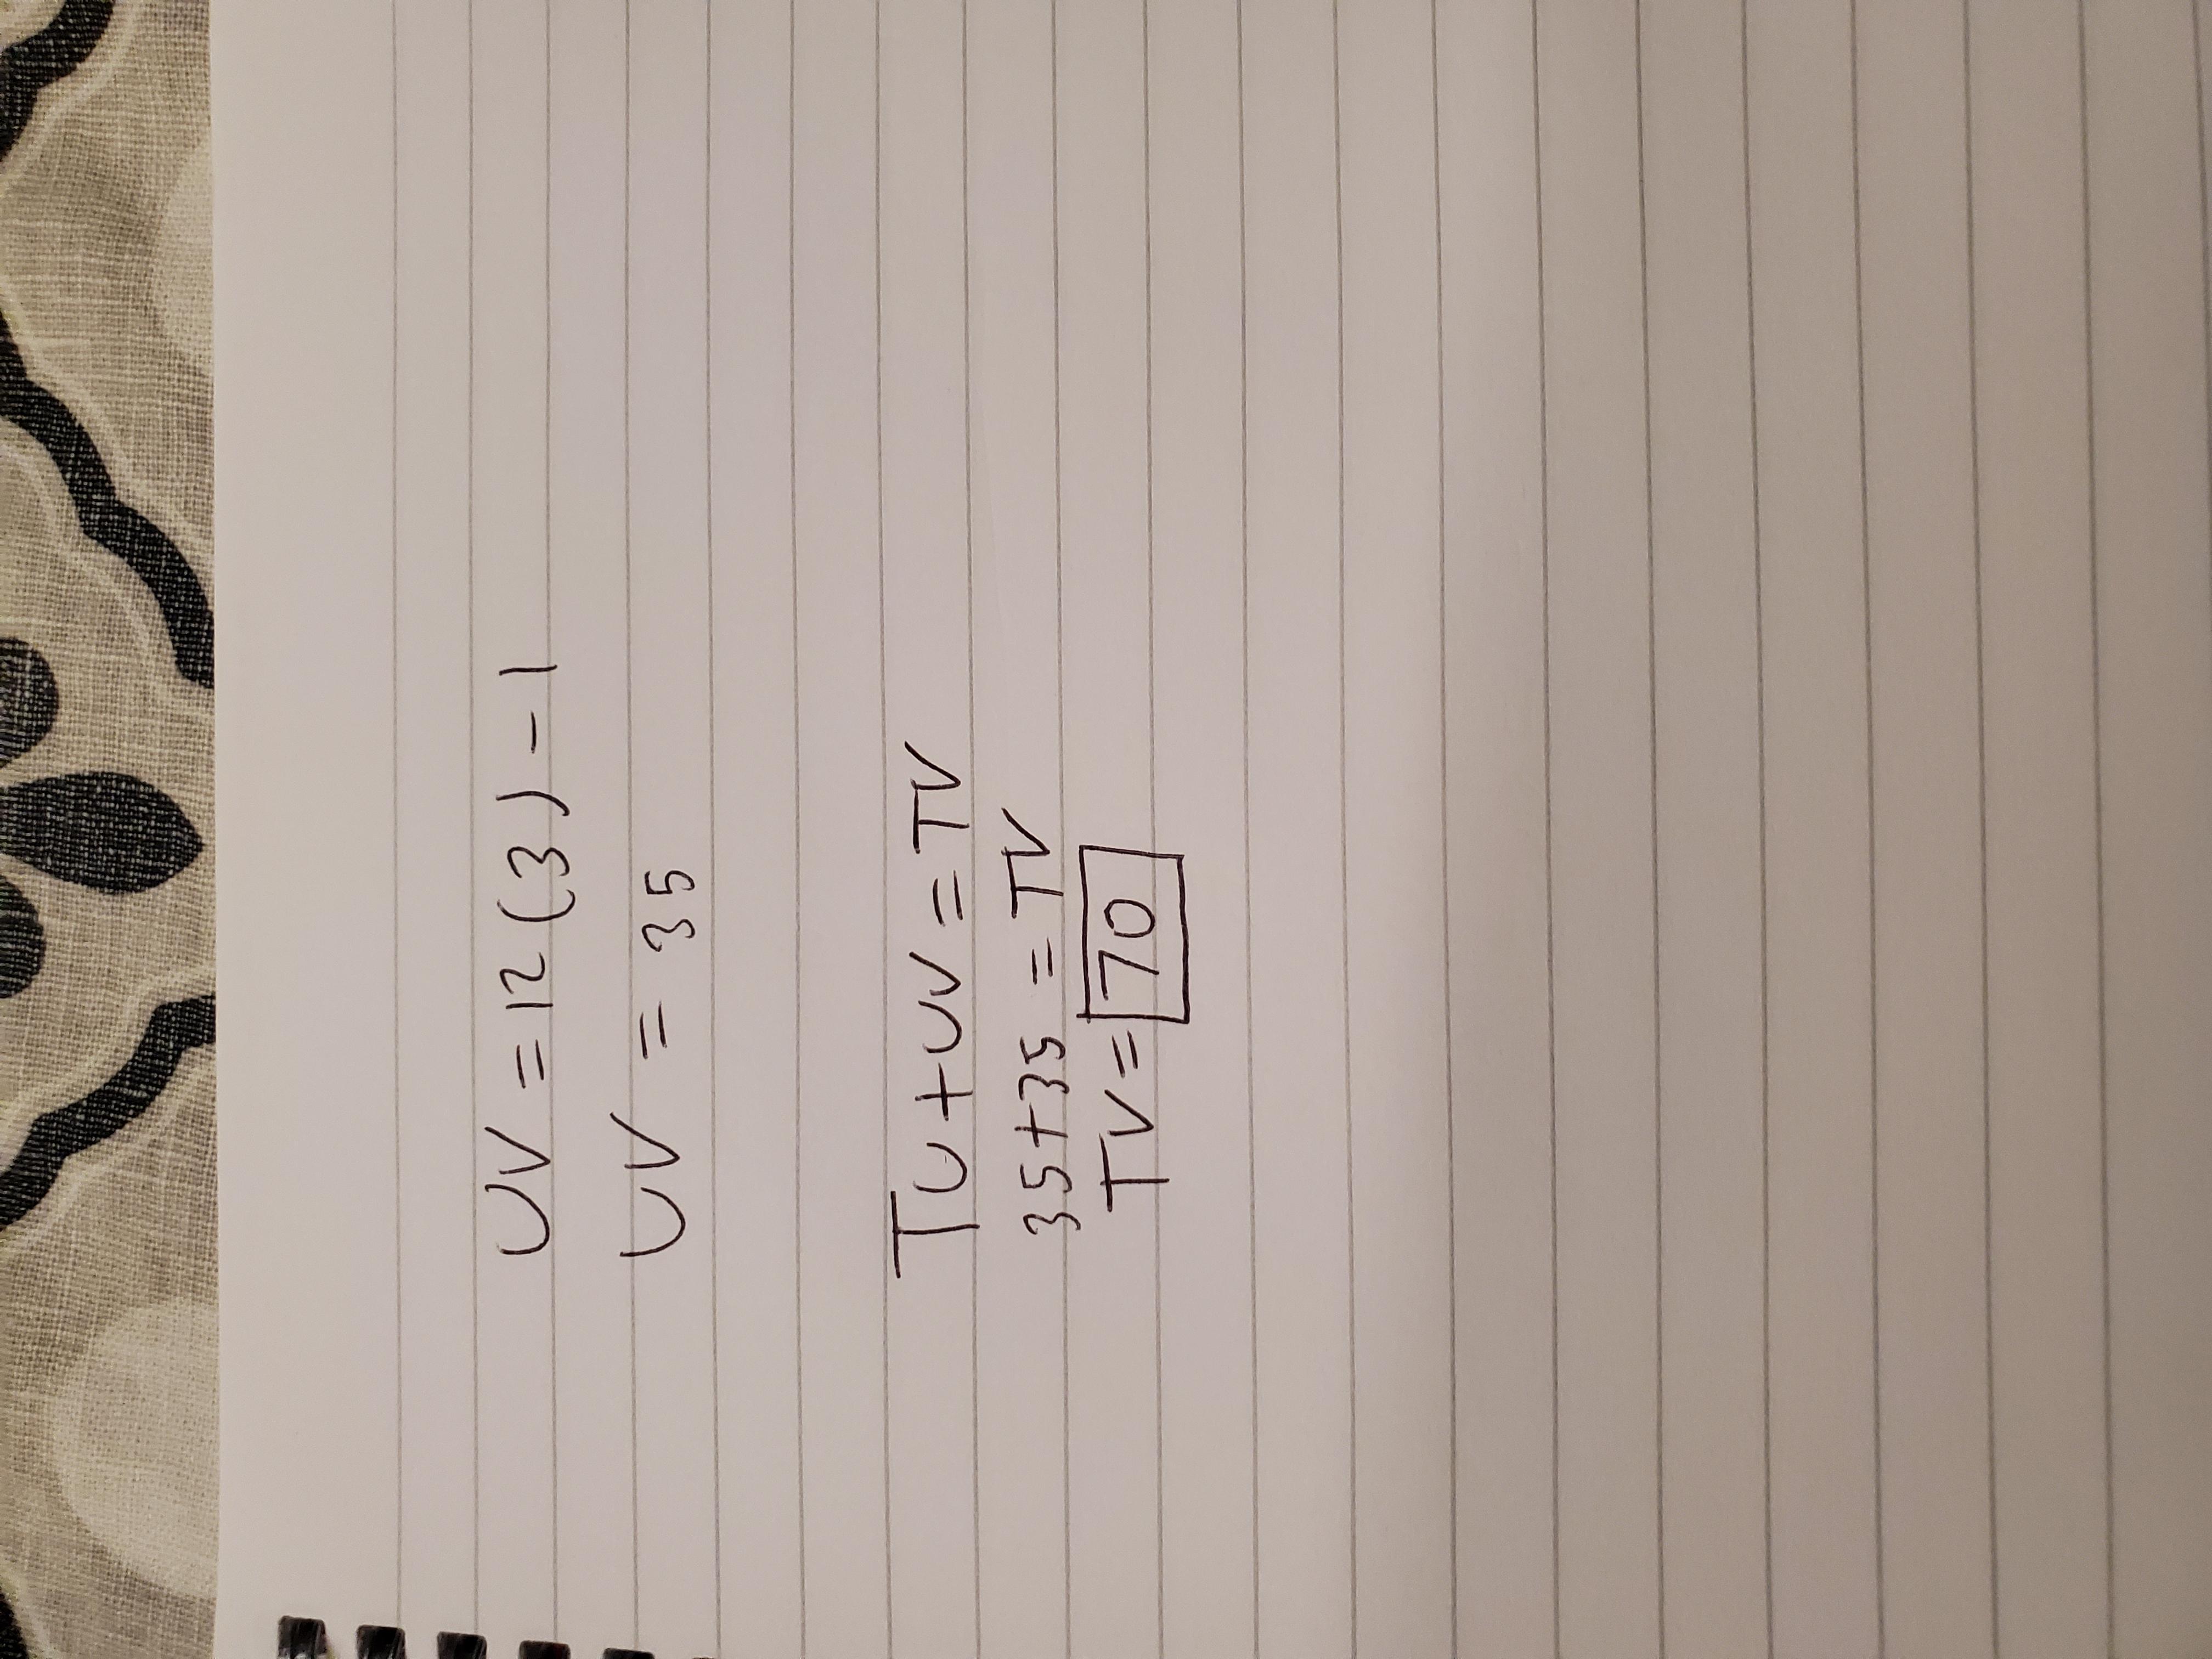 UV = 12(3) - 1
UV = 35
TU + UV = TV
35 + 35 = TV
TV = 70